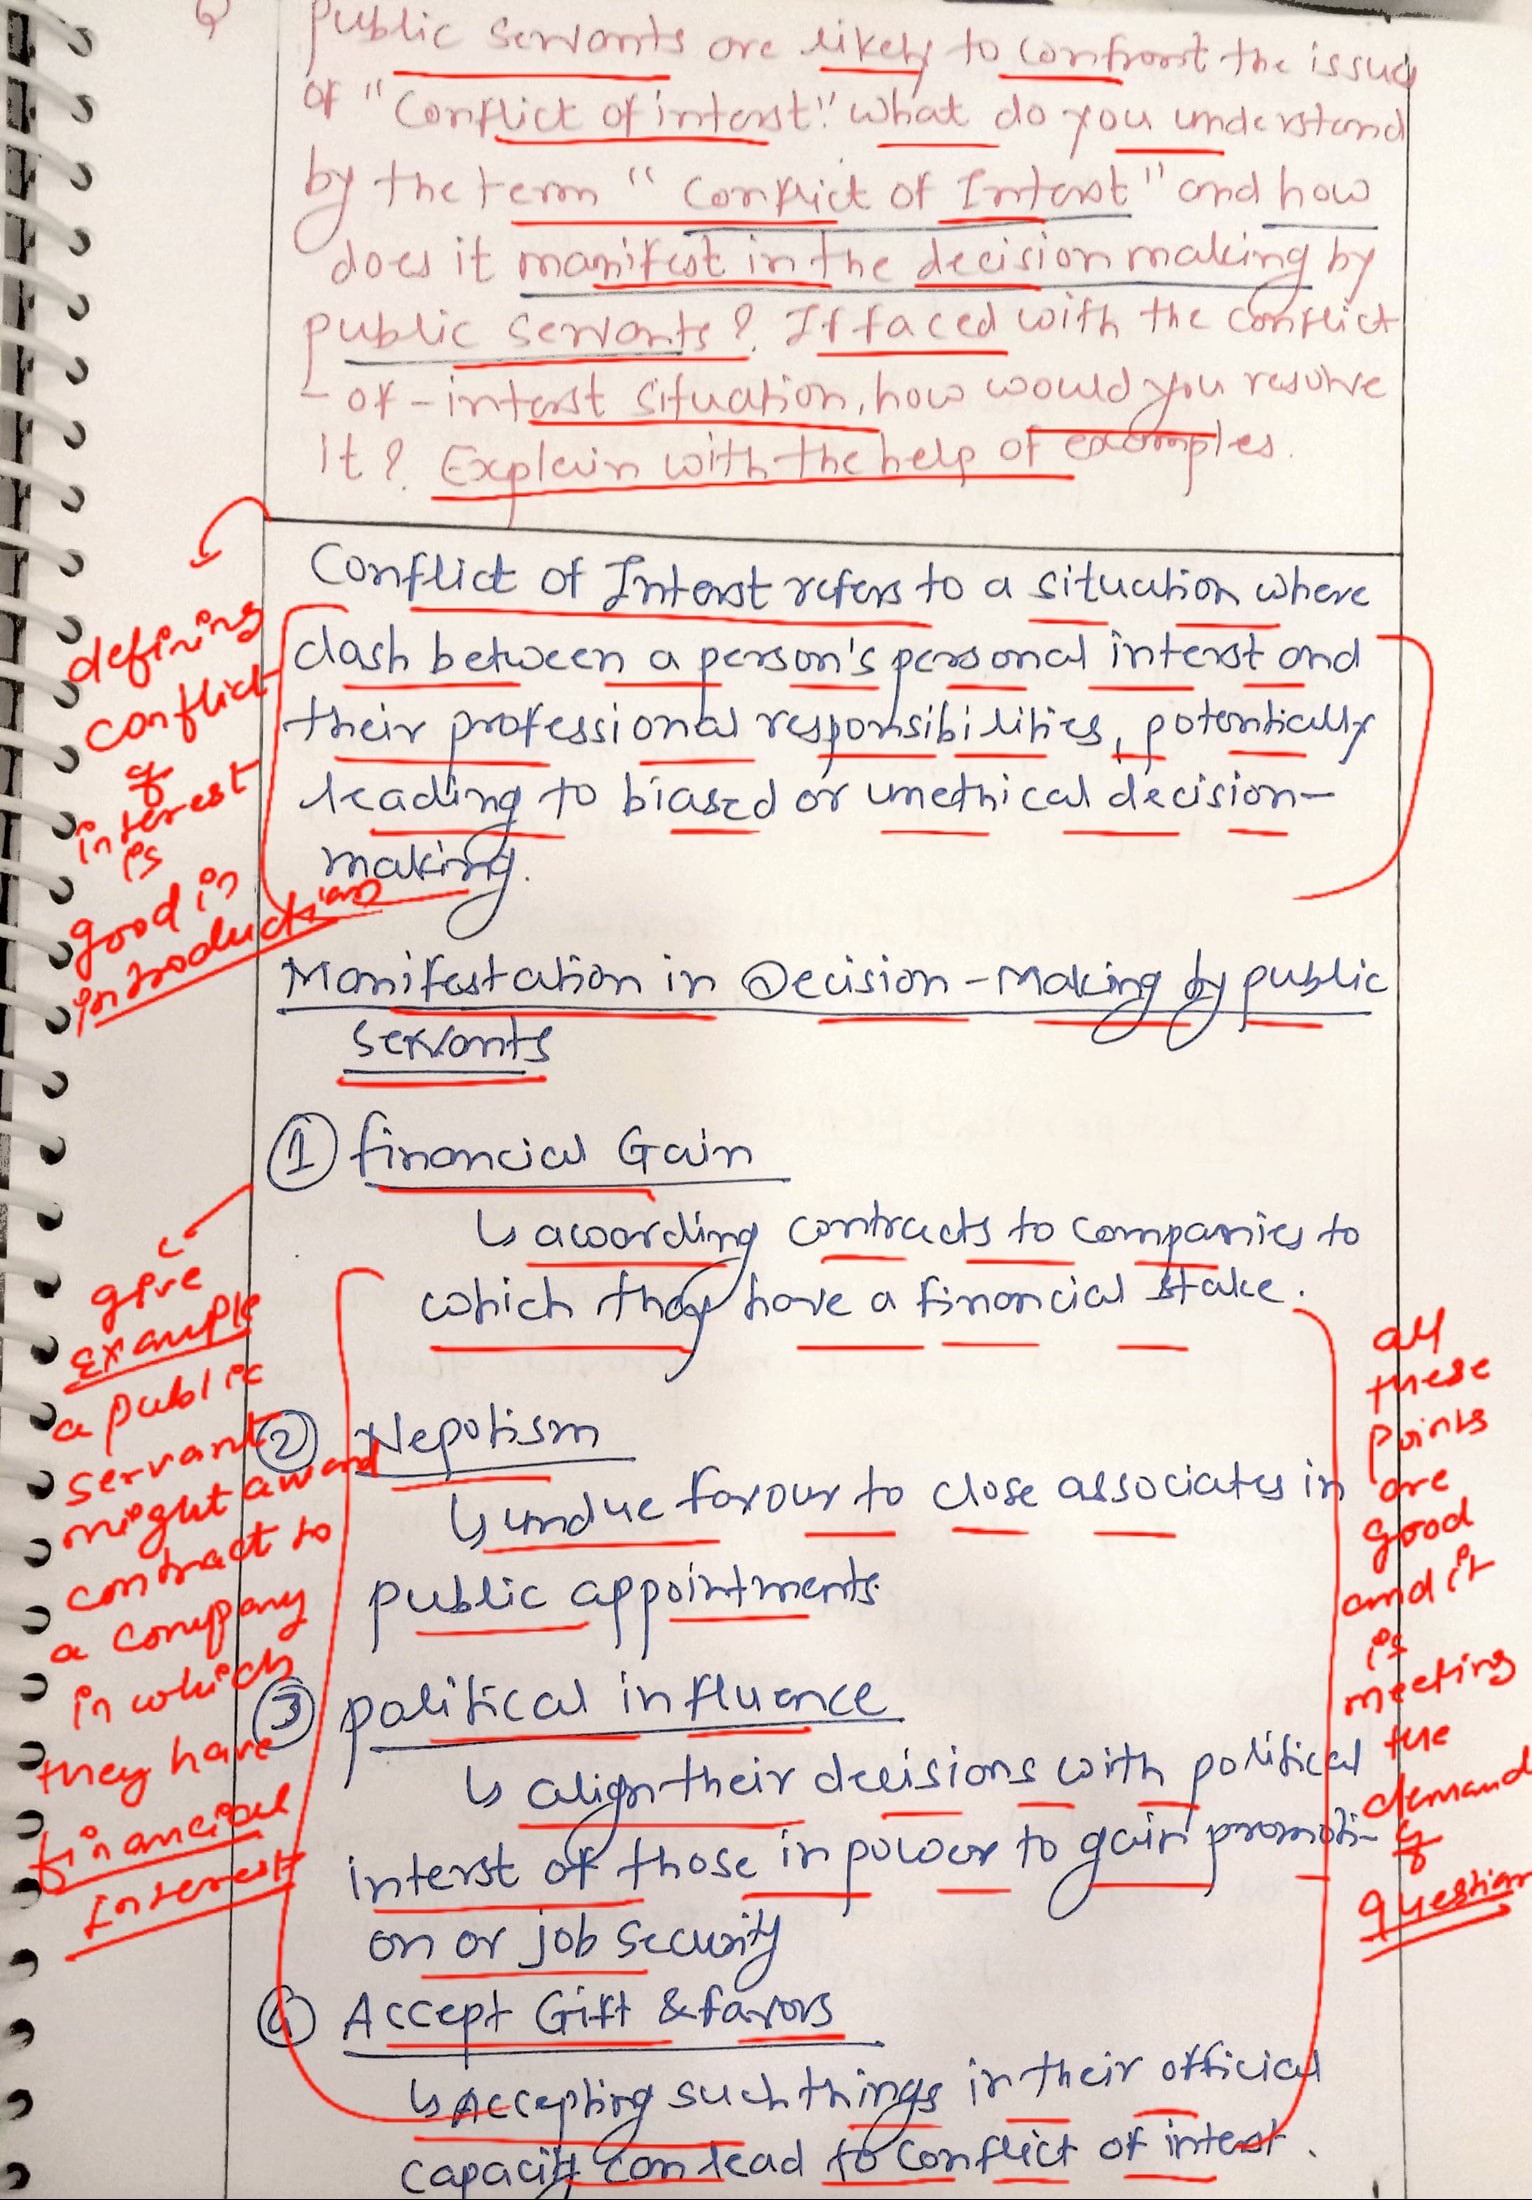 Q Public Servants are likely to confront the issue
of "Conflict of interst". What do you understand
by the term "Conflict of Interst" and how
does it manifest in the decision making by
public servants? If faced with the conflict
- of - interst situation, how would you resolve
it? Explain with the help of examples.
Conflict of Interst refers to a situation where
clash between a person's personal interst and
their professional responsibilities, potentically
leading to biased or unethical decision-
making.
defining
conflict
of
interest
is
good in
introduction
Manifestation in Decision-Making by public
servants
① financial Gain
↳ according contracts to companies to
which they have a financial stake.
② Nepotism
↳ undue favour to close associates in
public appointments.
③ political influence
↳ align their decisions with political
interst of those in power to gain promoti-
on or job security
④ Accept Gift & favors
↳ Accepting such things in their official
capacity can lead to conflict of interst.
give
Example
a public
servant
might award
contract to
a company
in which
they have
financial
Interest
all
these
points
are
good
and it
is
meeting
the
demand
of
question